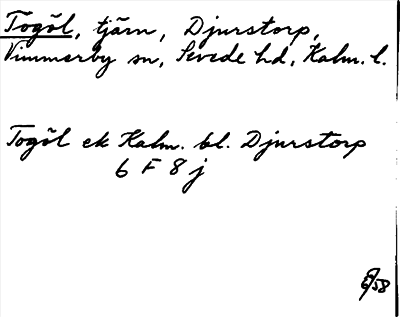 Togöl, tjärn, Djurstorp,
Vimmerby sn, Sevede hd, Kalm. l.
Togöl ek Kalm. bl. Djurstorp
6 F 8 j
/58